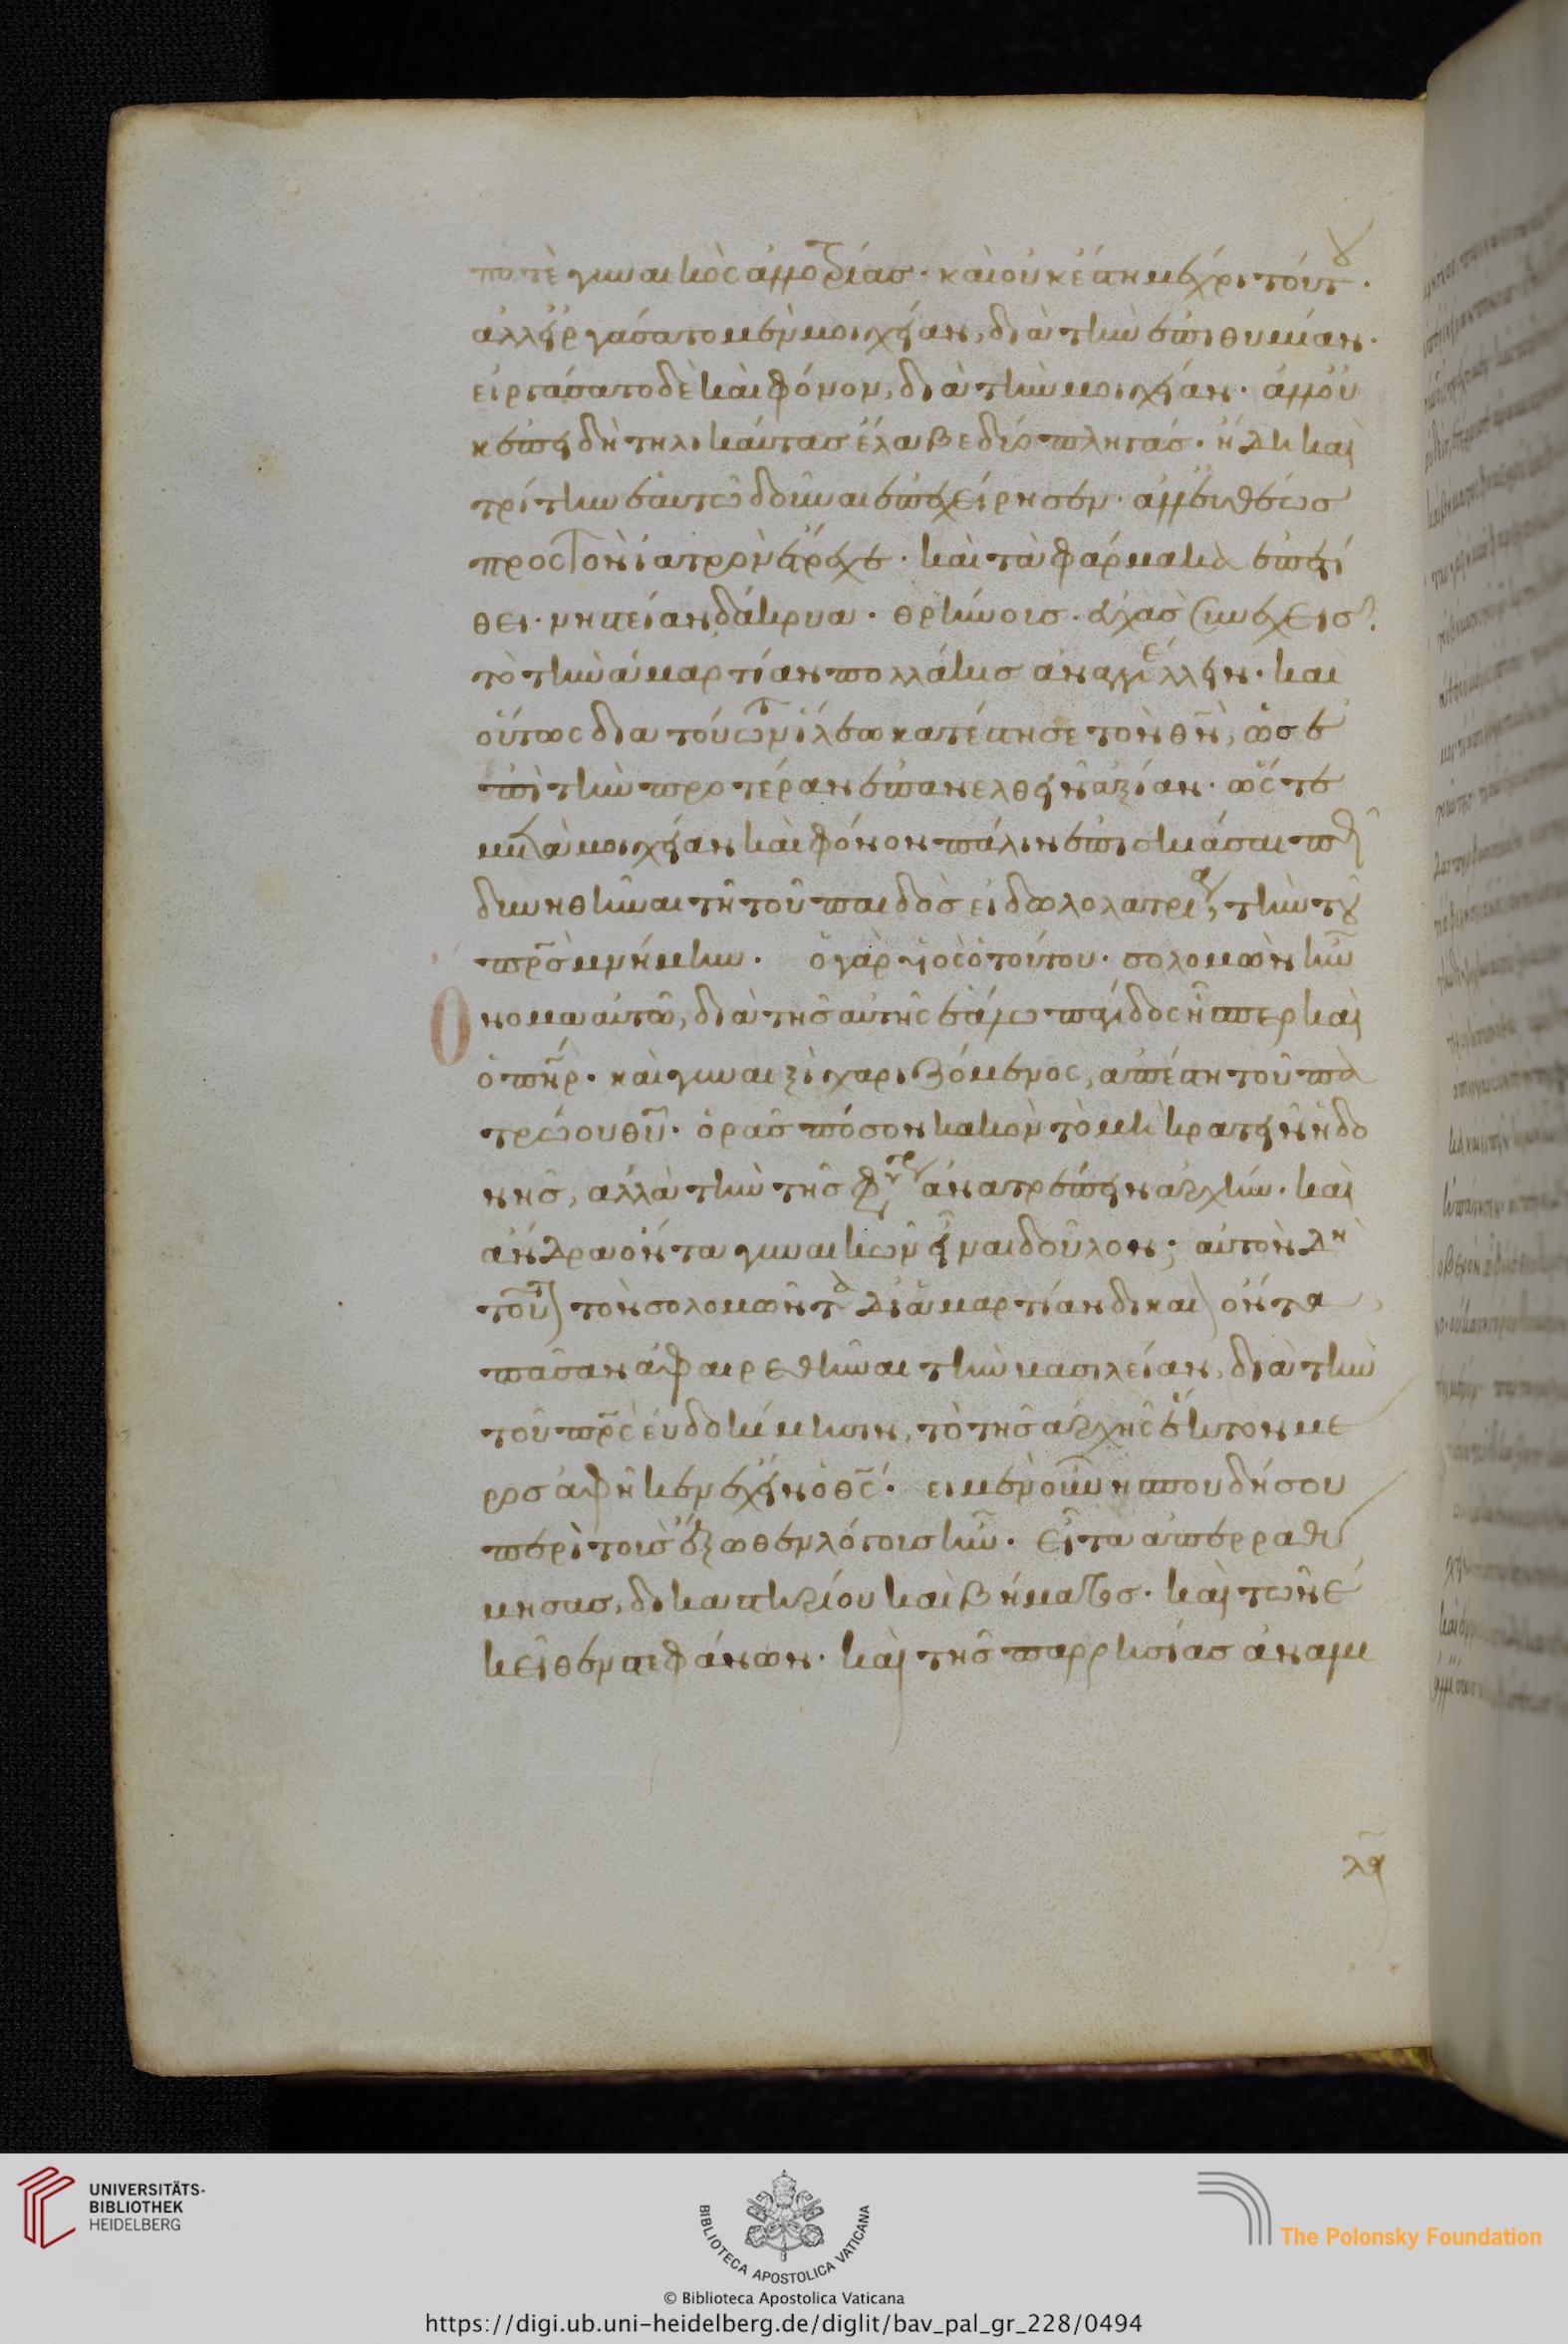 ποτὲ γυναικὸς ἀλλοτρίας· καὶ οὐκ ἔστη μέχρι τούτου·
ἀλλ' εἰργάσατο μὲν μοιχείαν, διὰ τὴν ἐπιθυμίαν·
εἰργάσατο δὲ καὶ φόνον, διὰ τὴν μοιχείαν· ἀλλ' οὐ
κ ἐπειδὴ τηλικαύτας ἔλαβε δύο πληγάς· ἤδη καὶ
τρίτην ἑαυτῶ δοῦναι ἐπεχείρησεν· ἀλλ' εὐθέως
πρὸς τὸν ἰατρὸν ἔτρεχε· καὶ τὰ φάρμακα ἐπετί
θει· νηστείαν δάκρυα· θρήνοις· εὐχὰς συνεχεῖς·
τὸ τὴν ἁμαρτίαν πολλάκις ἀναγγέλλειν· καὶ
οὕτως διὰ τούτων ἵλεω κατέστησε τὸν θν, ὡς ἐ
πὶ τὴν προτέραν ἐπανελθεῖν ἀξίαν· ὥς τε
μετὰ μοιχείαν καὶ φόνον πάλιν ἐπισκιάσαι
δυνηθῆναι τῆ τοῦ παιδὸς εἰδωλολατρεία, τὴν τοῦ
πρς μνήμην. ὁ γὰρ υἱὸς ὁ τούτου· σολομὼν ἦν
ὄνομα αὐτῶ, διὰ τῆς αὐτῆς ἑάλω παγίδος ἧσπερ καὶ
ὁ πηρ· καὶ γυναιξὶ χαριζόμενος, ἀπέστη τοῦ πα
τρώου θυ· ὁρᾶς πόσον κακὸν τὸ μὴ κρατεῖν ἡδο
νῆς, ἀλλὰ τὴν τῆς φύσεως ἀνατρέπειν ἀρχήν· καὶ
ἄνδρα ὄντα γυναικῶν εἶναι δοῦλον; αὐτὸν δὴ
τοῦτον τὸν σολομῶντα δι' ἁμαρτίαν δίκαιον ὄντα
πᾶσαν ἀφαιρεθῆναι τὴν βασιλείαν, διὰ τὴν
τοῦ πρς εὐδοκίμησιν, τὸ τῆς ἀρχῆς ἕκτον μέ
ρος ἀφῆκεν ἔχειν ὁ θς· εἰ μὲν οὖν ἡ σπουδή σου
περὶ τοὺς ἔξωθεν λόγους ἦν· εἶτα ἀπερραθύ
μησας, δικαστηρίου καὶ βήματος· καὶ τῶν ἐ
κεῖθεν στεφάνων· καὶ τῆς παρρησίας ἀναμι
UNIVERSITÄTS-
BIBLIOTHEK
HEIDELBERG
BIBLIOTECA APOSTOLICA VATICANA
The Polonsky Foundation
© Biblioteca Apostolica Vaticana
https://digi.ub.uni-heidelberg.de/diglit/bav_pal_gr_228/0494